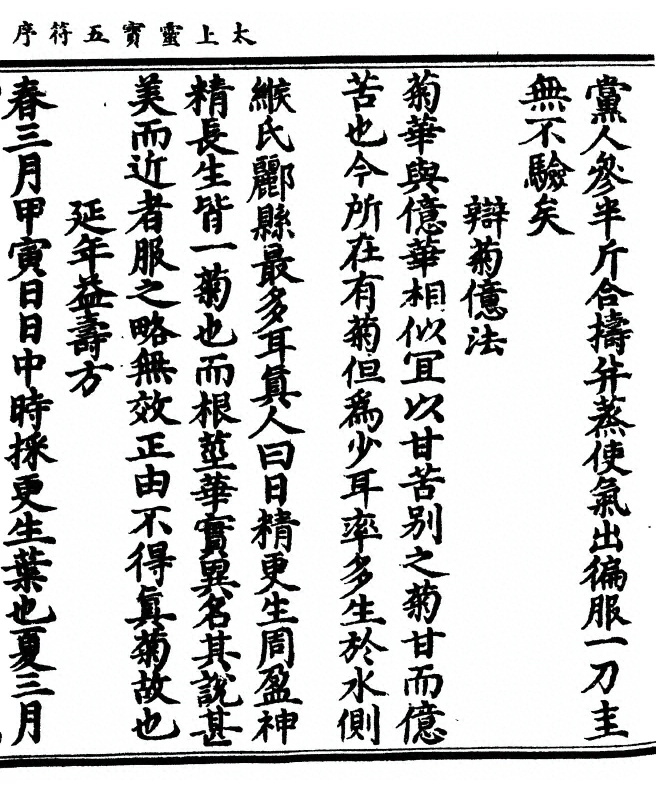 太上靈寶五符序
黨人參半斤合擣幷蒸使氣出徧服一刀圭
無不驗矣
辯菊億法
菊華與億華相似冝以甘苦别之菊甘而億
苦也今所在有菊但爲少耳率多生於水側
緱氏酈縣最多耳眞人曰日精更生周盈神
精長生皆一菊也而根莖華實異名其說甚
美而近者服之略無效正由不得眞菊故也
延年益壽方
春三月甲寅日日中時採更生葉也夏三月